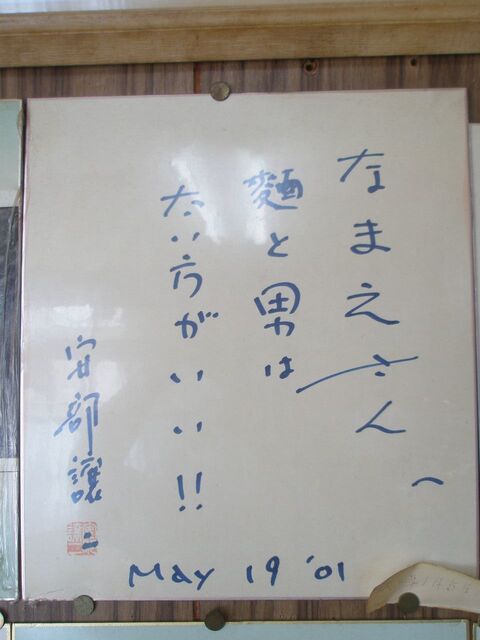 なまえさんへ
麺と男は
太い方がいい!!
安部譲二
May 19 '01